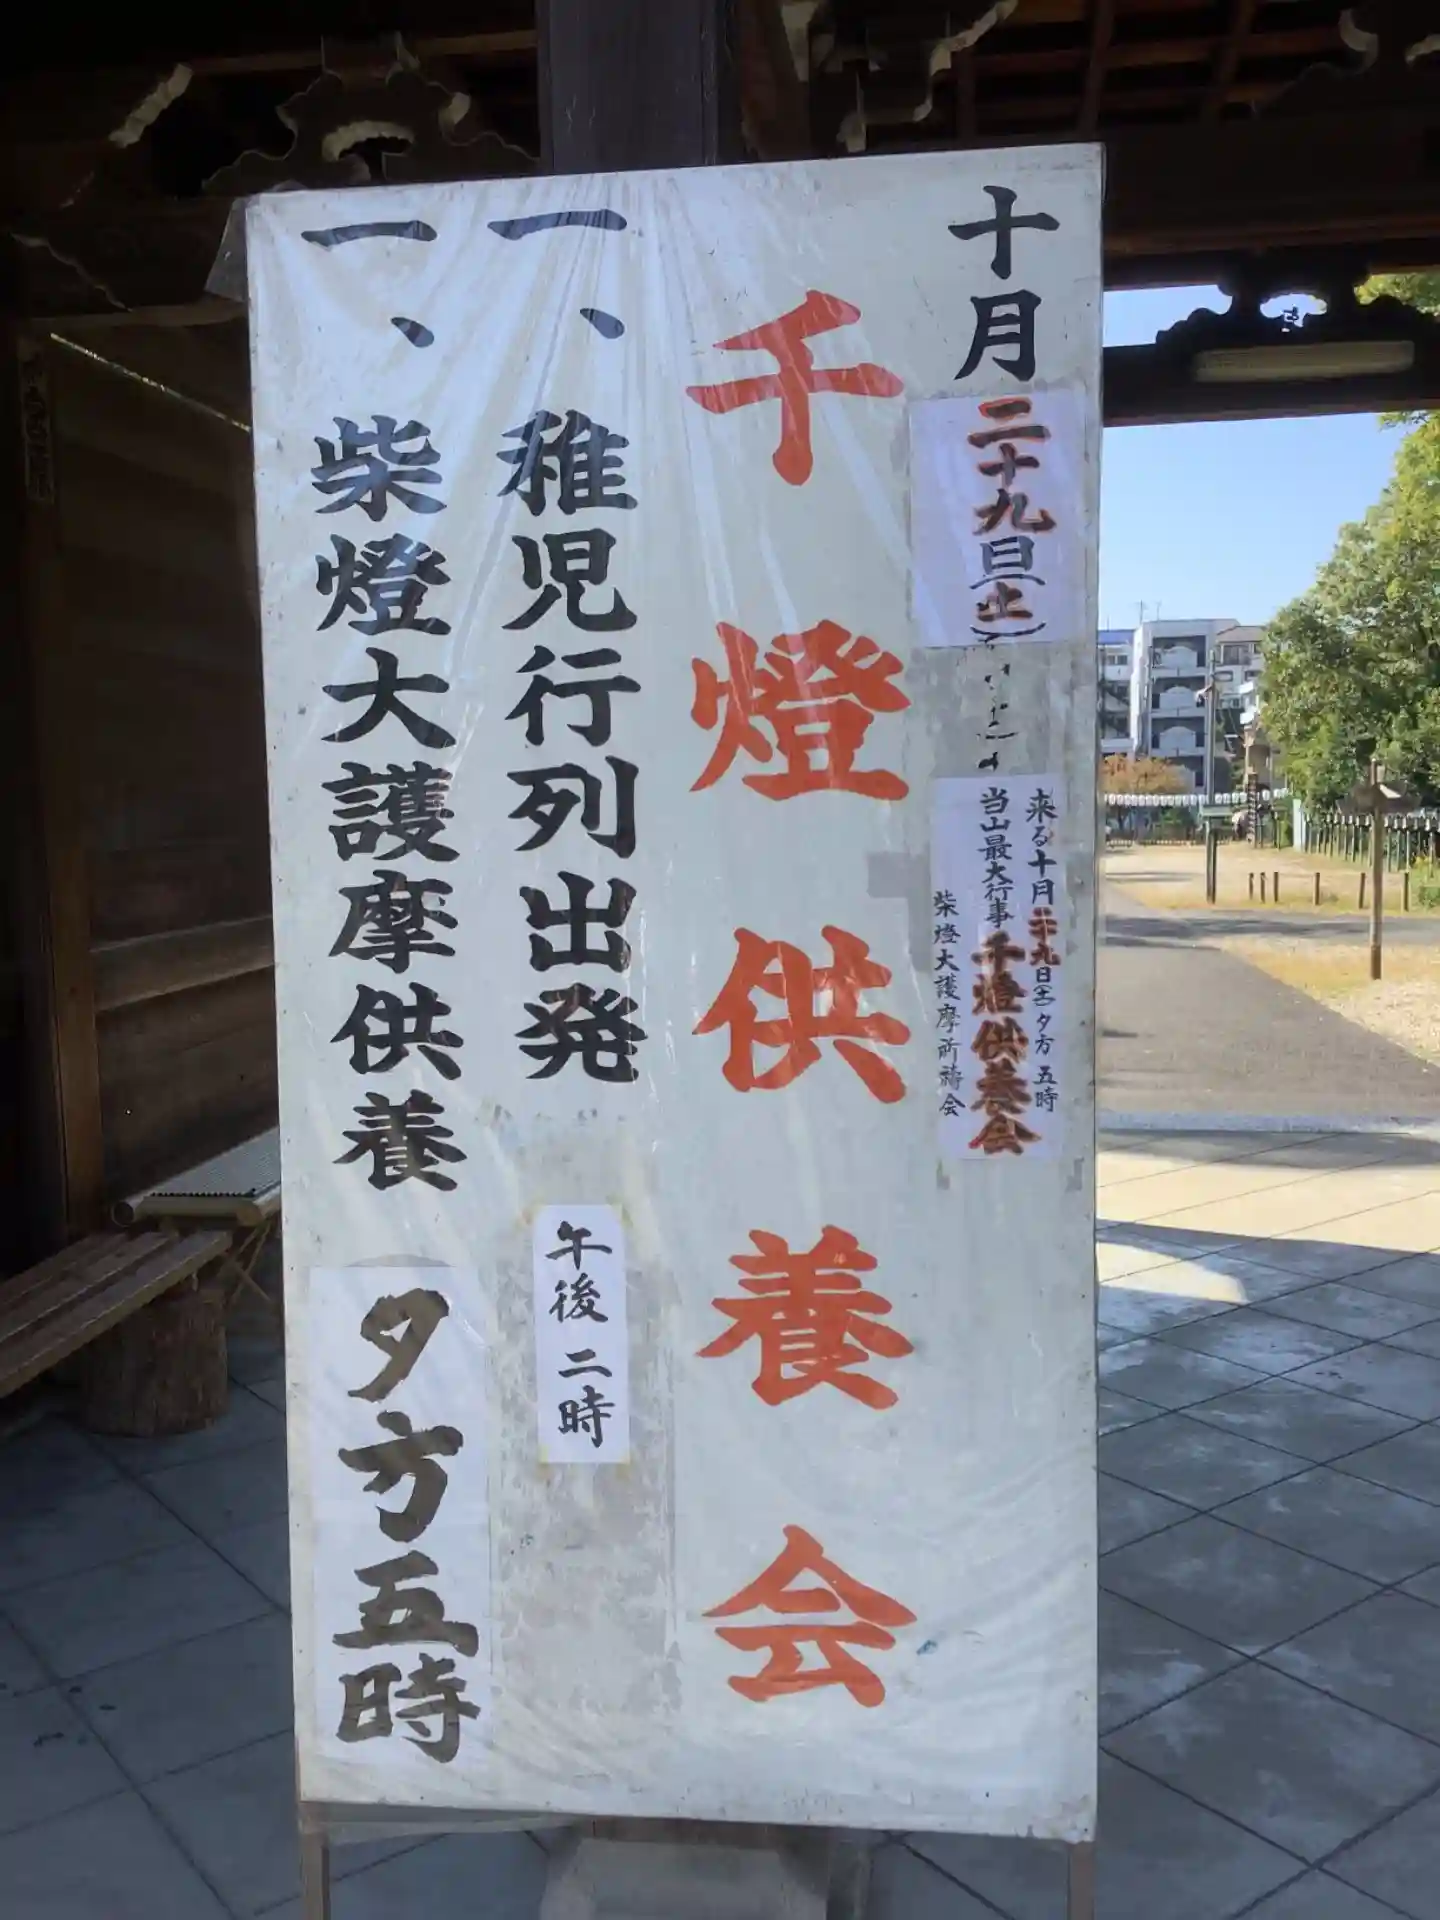 十月二十九日(土)
来る十月二十九日(土)夕方 五時
当山最大行事 千燈供養会
柴燈大護摩祈祷会
千燈供養会
一、稚児行列出発 午後二時
一、柴燈大護摩供養 夕方五時